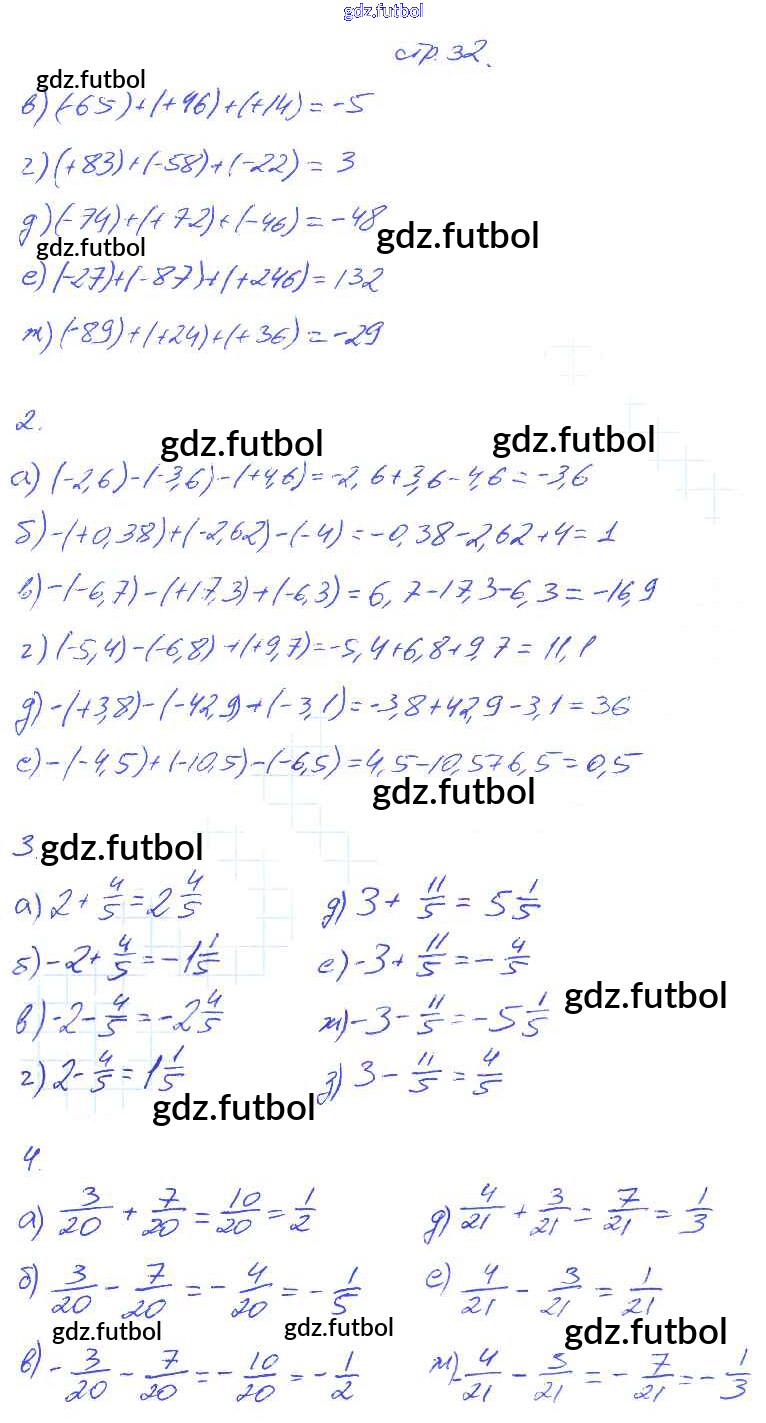 gdz.futbol
стр. 32.
gdz.futbol
в) (-65)+(+46)+(+14)=-5
г) (+83)+(-58)+(-22)=3
д) (-74)+(+72)+(-46)=-48
gdz.futbol
gdz.futbol
е) (-27)+(-87)+(+246)=132
ж) (-89)+(+24)+(+36)=-29
2.
gdz.futbol gdz.futbol
а) (-2,6)-(-3,6)-(+4,6)=-2,6+3,6-4,6=-3,6
б) -(+0,38)+(-2,62)-(-4)=-0,38-2,62+4=1
в) -(-6,7)-(+17,3)+(-6,3)=6,7-17,3-6,3=-16,9
г) (-5,4)-(-6,8)+(+9,7)=-5,4+6,8+9,7=11,1
д) -(+3,8)-(-42,9)+(-3,1)=-3,8+42,9-3,1=36
е) -(-4,5)+(-10,5)-(-6,5)=4,5-10,5+6,5=0,5
gdz.futbol
3. gdz.futbol
а) 2+4/5=2 4/5 д) 3+11/5=5 1/5
б) -2+4/5=-1 1/5 е) -3+11/5=-4/5
gdz.futbol
в) -2-4/5=-2 4/5 ж) -3-11/5=-5 1/5
г) 2-4/5=1 1/5 з) 3-11/5=4/5
gdz.futbol
4.
а) 3/20+7/20=10/20=1/2 д) 4/21+3/21=7/21=1/3
б) 3/20-7/20=-4/20=-1/5 е) 4/21-3/21=1/21
gdz.futbol gdz.futbol gdz.futbol
в) -3/20-7/20=-10/20=-1/2 ж) -4/21-3/21=-7/21=-1/3